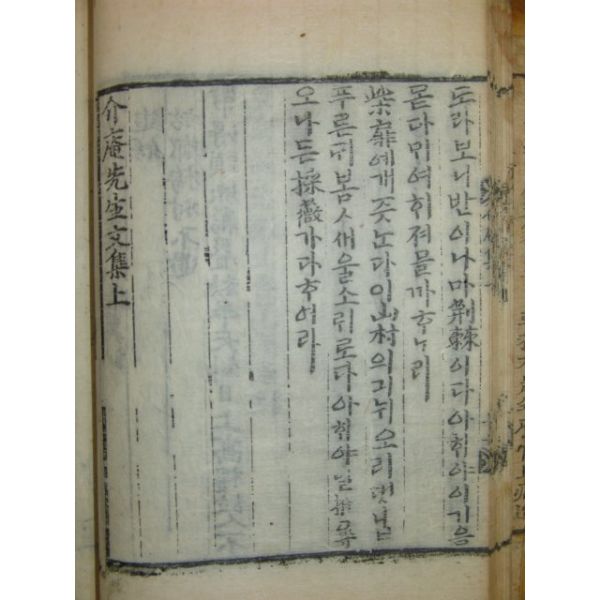 도라보니반이나마荊棘이다아ᄒᆡ야이기음
몯다ᄆᆡ여ᄒᆡ져믈까ᄒᆞ노라
柴扉예개즛노다이山村의긔뉘오리댓닙
푸른ᄃᆡ봄ㅅ새울소ᄅᆡ로다아ᄒᆡ야날推尋
오나든採薇가다ᄒᆞ여라
介庵先生文集上